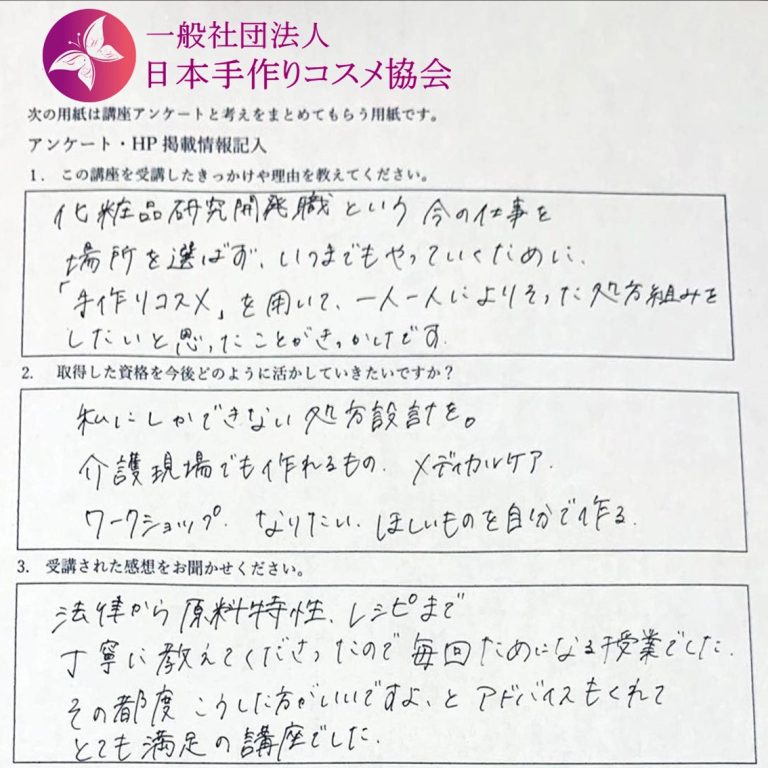 一般社団法人
日本手作りコスメ協会
次の用紙は講座アンケートと考えをまとめてもらう用紙です。
アンケート・HP 掲載情報記入
1. この講座を受講したきっかけや理由を教えてください。
化粧品研究開発職という今の仕事を
場所を選ばず、いつまでもやっていくために、
「手作りコスメ」を用いて、一人一人によりそった処方組みを
したいと思ったことがきっかけです.
2. 取得した資格を今後どのように活かしていきたいですか？
私にしかできない処方設計を。
介護現場でも作れるもの. メディカルケア.
ワークショップ. なりたい. ほしいものを自分で作る.
3. 受講された感想をお聞かせください。
法律から原料特性、レシピまで
丁寧に教えてくださったので毎回ためになる授業でした.
その都度こうした方がいいですよ、とアドバイスもくれて
とても満足の講座でした.